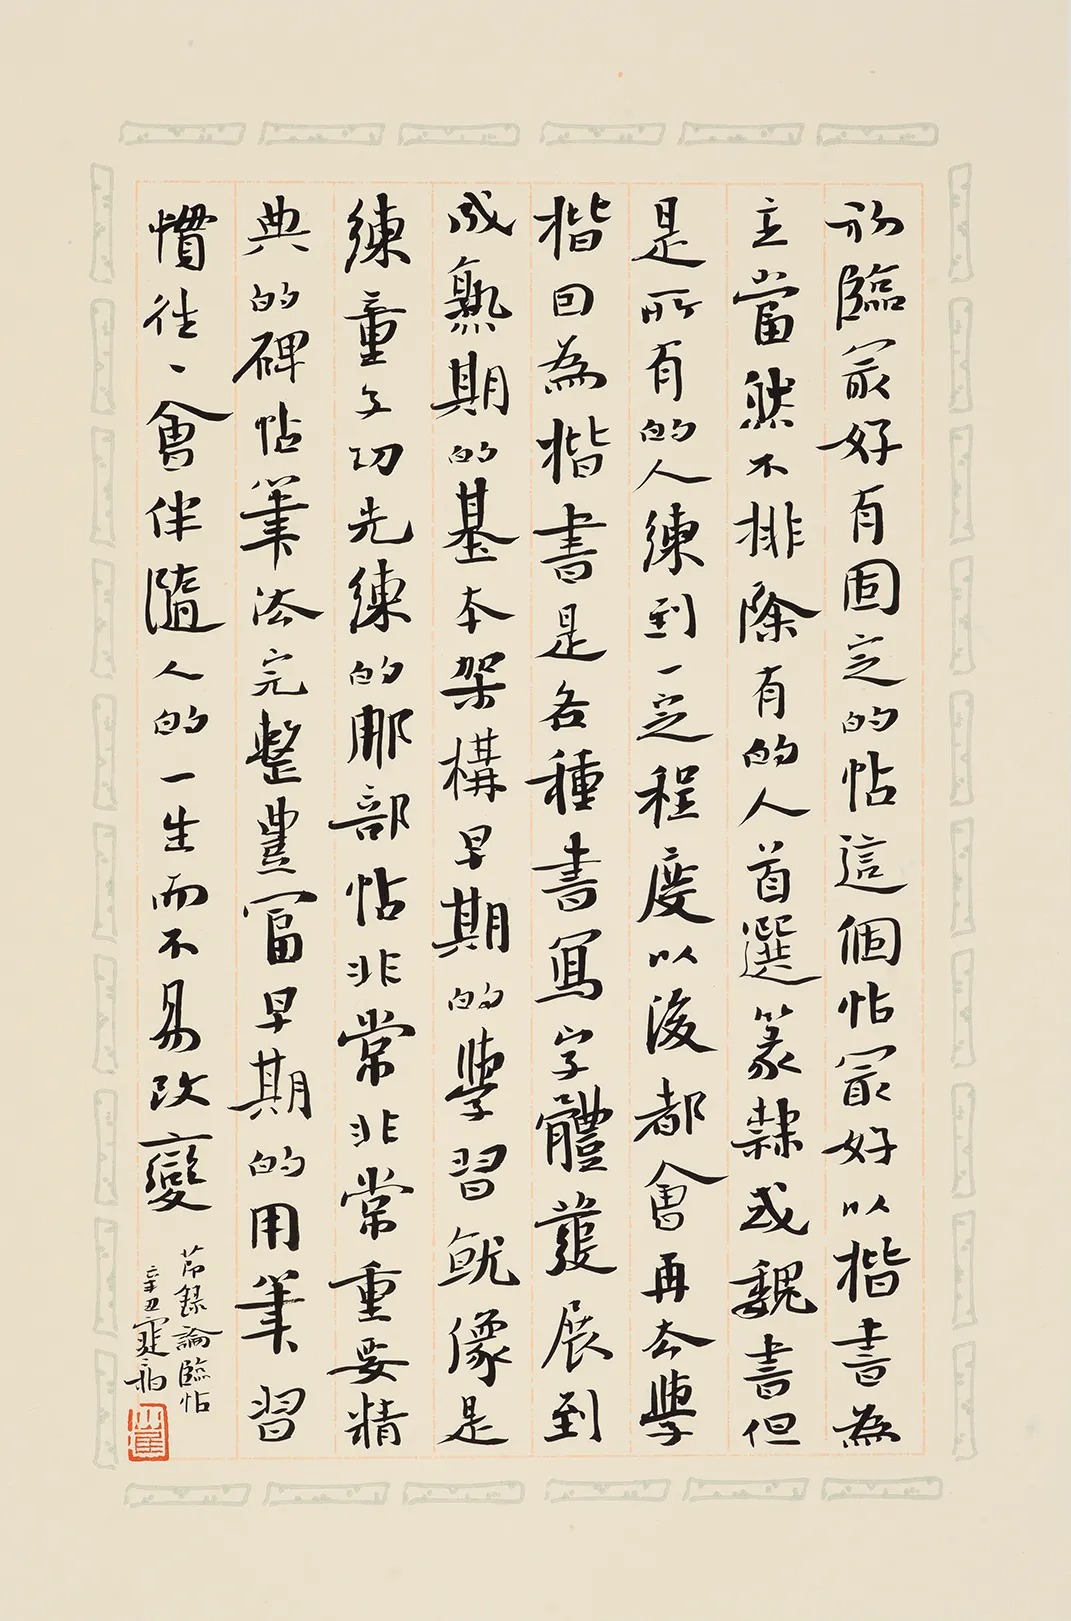 初臨最好有固定的帖這個帖最好以楷書為
主當然不排除有的人首選篆隸或魏書但
是所有的人練到一定程度以後都會再去學
楷回為楷書是各種書寫字體發展到
成熟期的基本架構早期的學習就像是
練童子功先練的那部帖非常非常重要精
典的碑帖筆法完整豐富早期的用筆習
慣往、會伴隨人的一生而不易改變
節錄論臨帖
辛丑寔